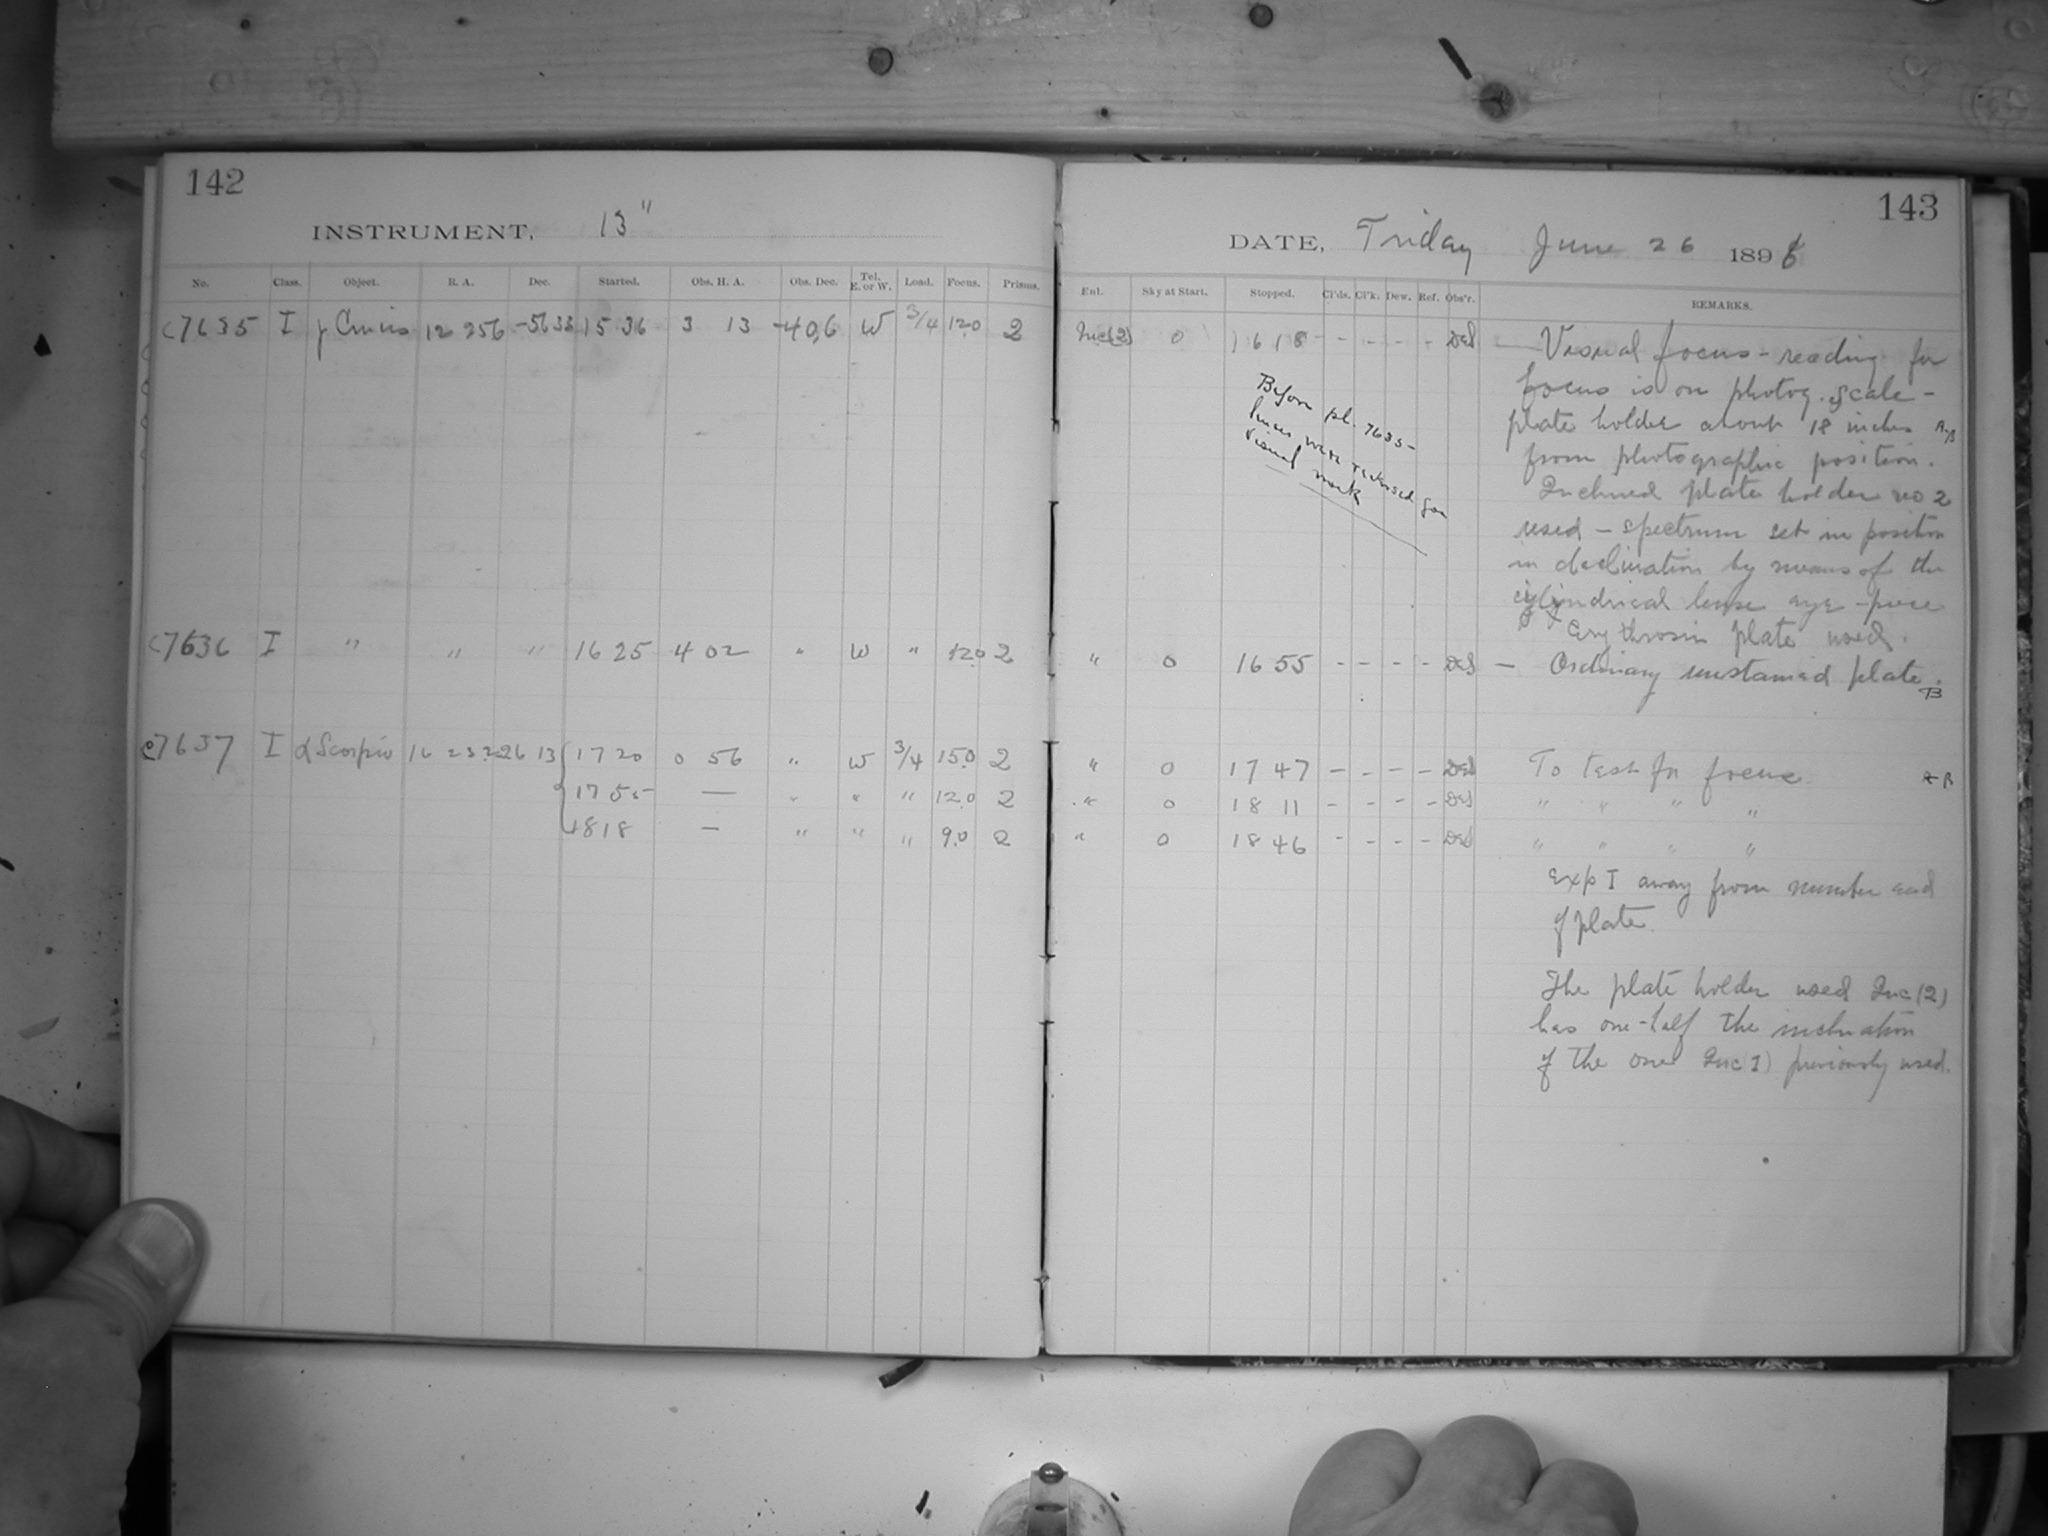 142
INSTRUMENT, 13"
No. Class. Object. R. A. Dec. Started. Obs. H. A. Obs. Dec. Tel. E. or W. Load. Focus. Prisms.
c7635 I γ Crucis 12 256 -5633 15 36 3 13 -40,6 W 3/4 12.0 2
c7636 I " " " 16 25 4 02 " W " 12.0 2
c7637 I α Scorpio 16 23.2 -26 13 17 20 0 56 " W 3/4 15.0 2
17 55 — " " " 12.0 2
1818 — " " " 9.0 2
143
DATE, Friday June 26 1896
Enl. Sky at Start. Stopped. Cl'ds. Cl'k. Dew. Ref. Obs'r. REMARKS.
Inc(2) 0 1618 - - - - — Visual focus - reading for
focus is on photog. scale -
plate holder about 18 inches
from photographic position.
Inclined plate holder no 2
used - spectrum set in position
in declination by means of the
cylindrical lense eye-piece
Erythrosin plate used.
Before pl. 7635 -
lenses were reversed for
visual work
" 0 16 55 - - - - — Ordinary unstained plate.
B
" 0 17 47 - - - - To test for focus
" 0 18 11 - - - - " " " "
" 0 18 46 - - - - " " " "
Exp I away from number end
of plate.
The plate holder used Inc(2)
has one-half the inclination
of the one Inc(1) previously used.